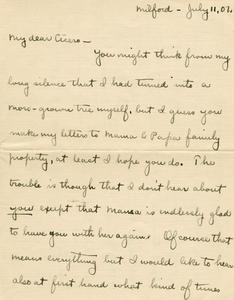 Milford - July 11, 07.
My dear Cicero -
You might think from my
long silence that I had turned into a
moss-grown tree myself, but I guess you
make my letters to Mama & Papa family
property, at least I hope you do. The
trouble is though that I don't hear about
you except that Mama is endlessly glad
to have you with her again. Of course that
means everything but I would like to hear
also at first hand what kind of times